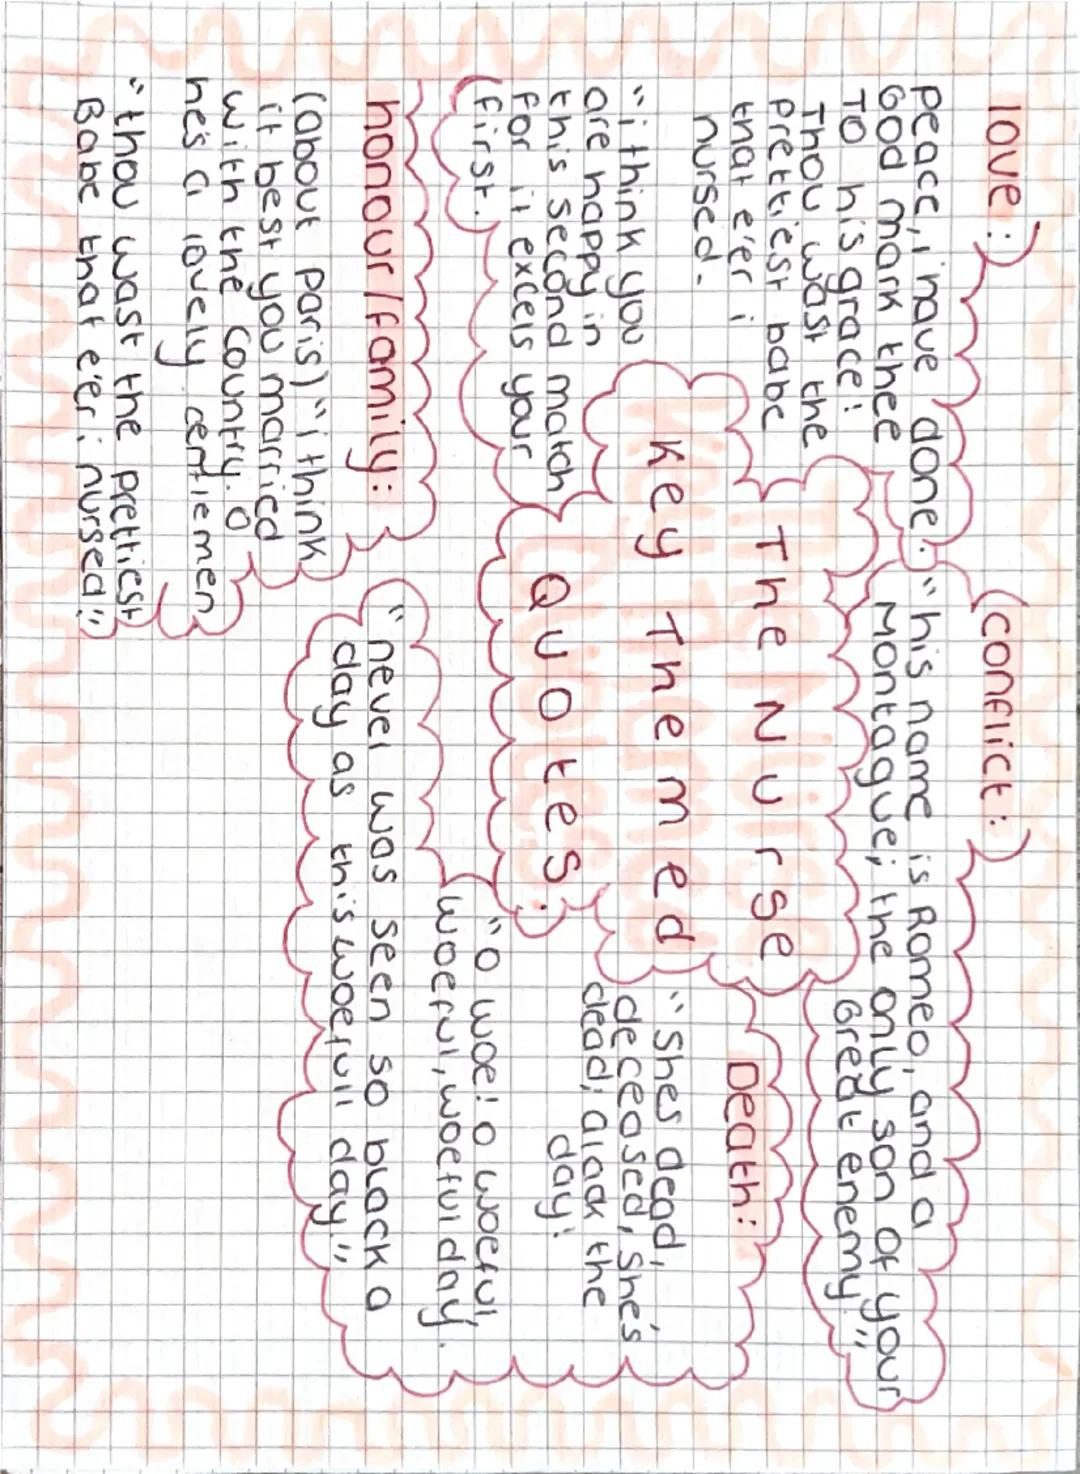 The Nurse
Key Themed
Quotes:
love:
peace, i have done.
God mark thee
To his grace!
Thou wast the
prettiest babe
that e'er i
nursed.
"i think you
are happy in
this second match
for it excels your
first.
conflict:
"his name is Romeo, and a
Montague; the only son of your
Great enemy."
Death:
"Shes dead,
deceased, she's
dead; alack the
day!
"O woe! O woeful,
woeful, woeful day.
"never was seen so black a
day as this woefull day."
honour/family:
(about paris) "i think
it best you married
with the county. O
he's a lovely gentlemen
"thou wast the prettiest
Babe that e'er i nursed!"